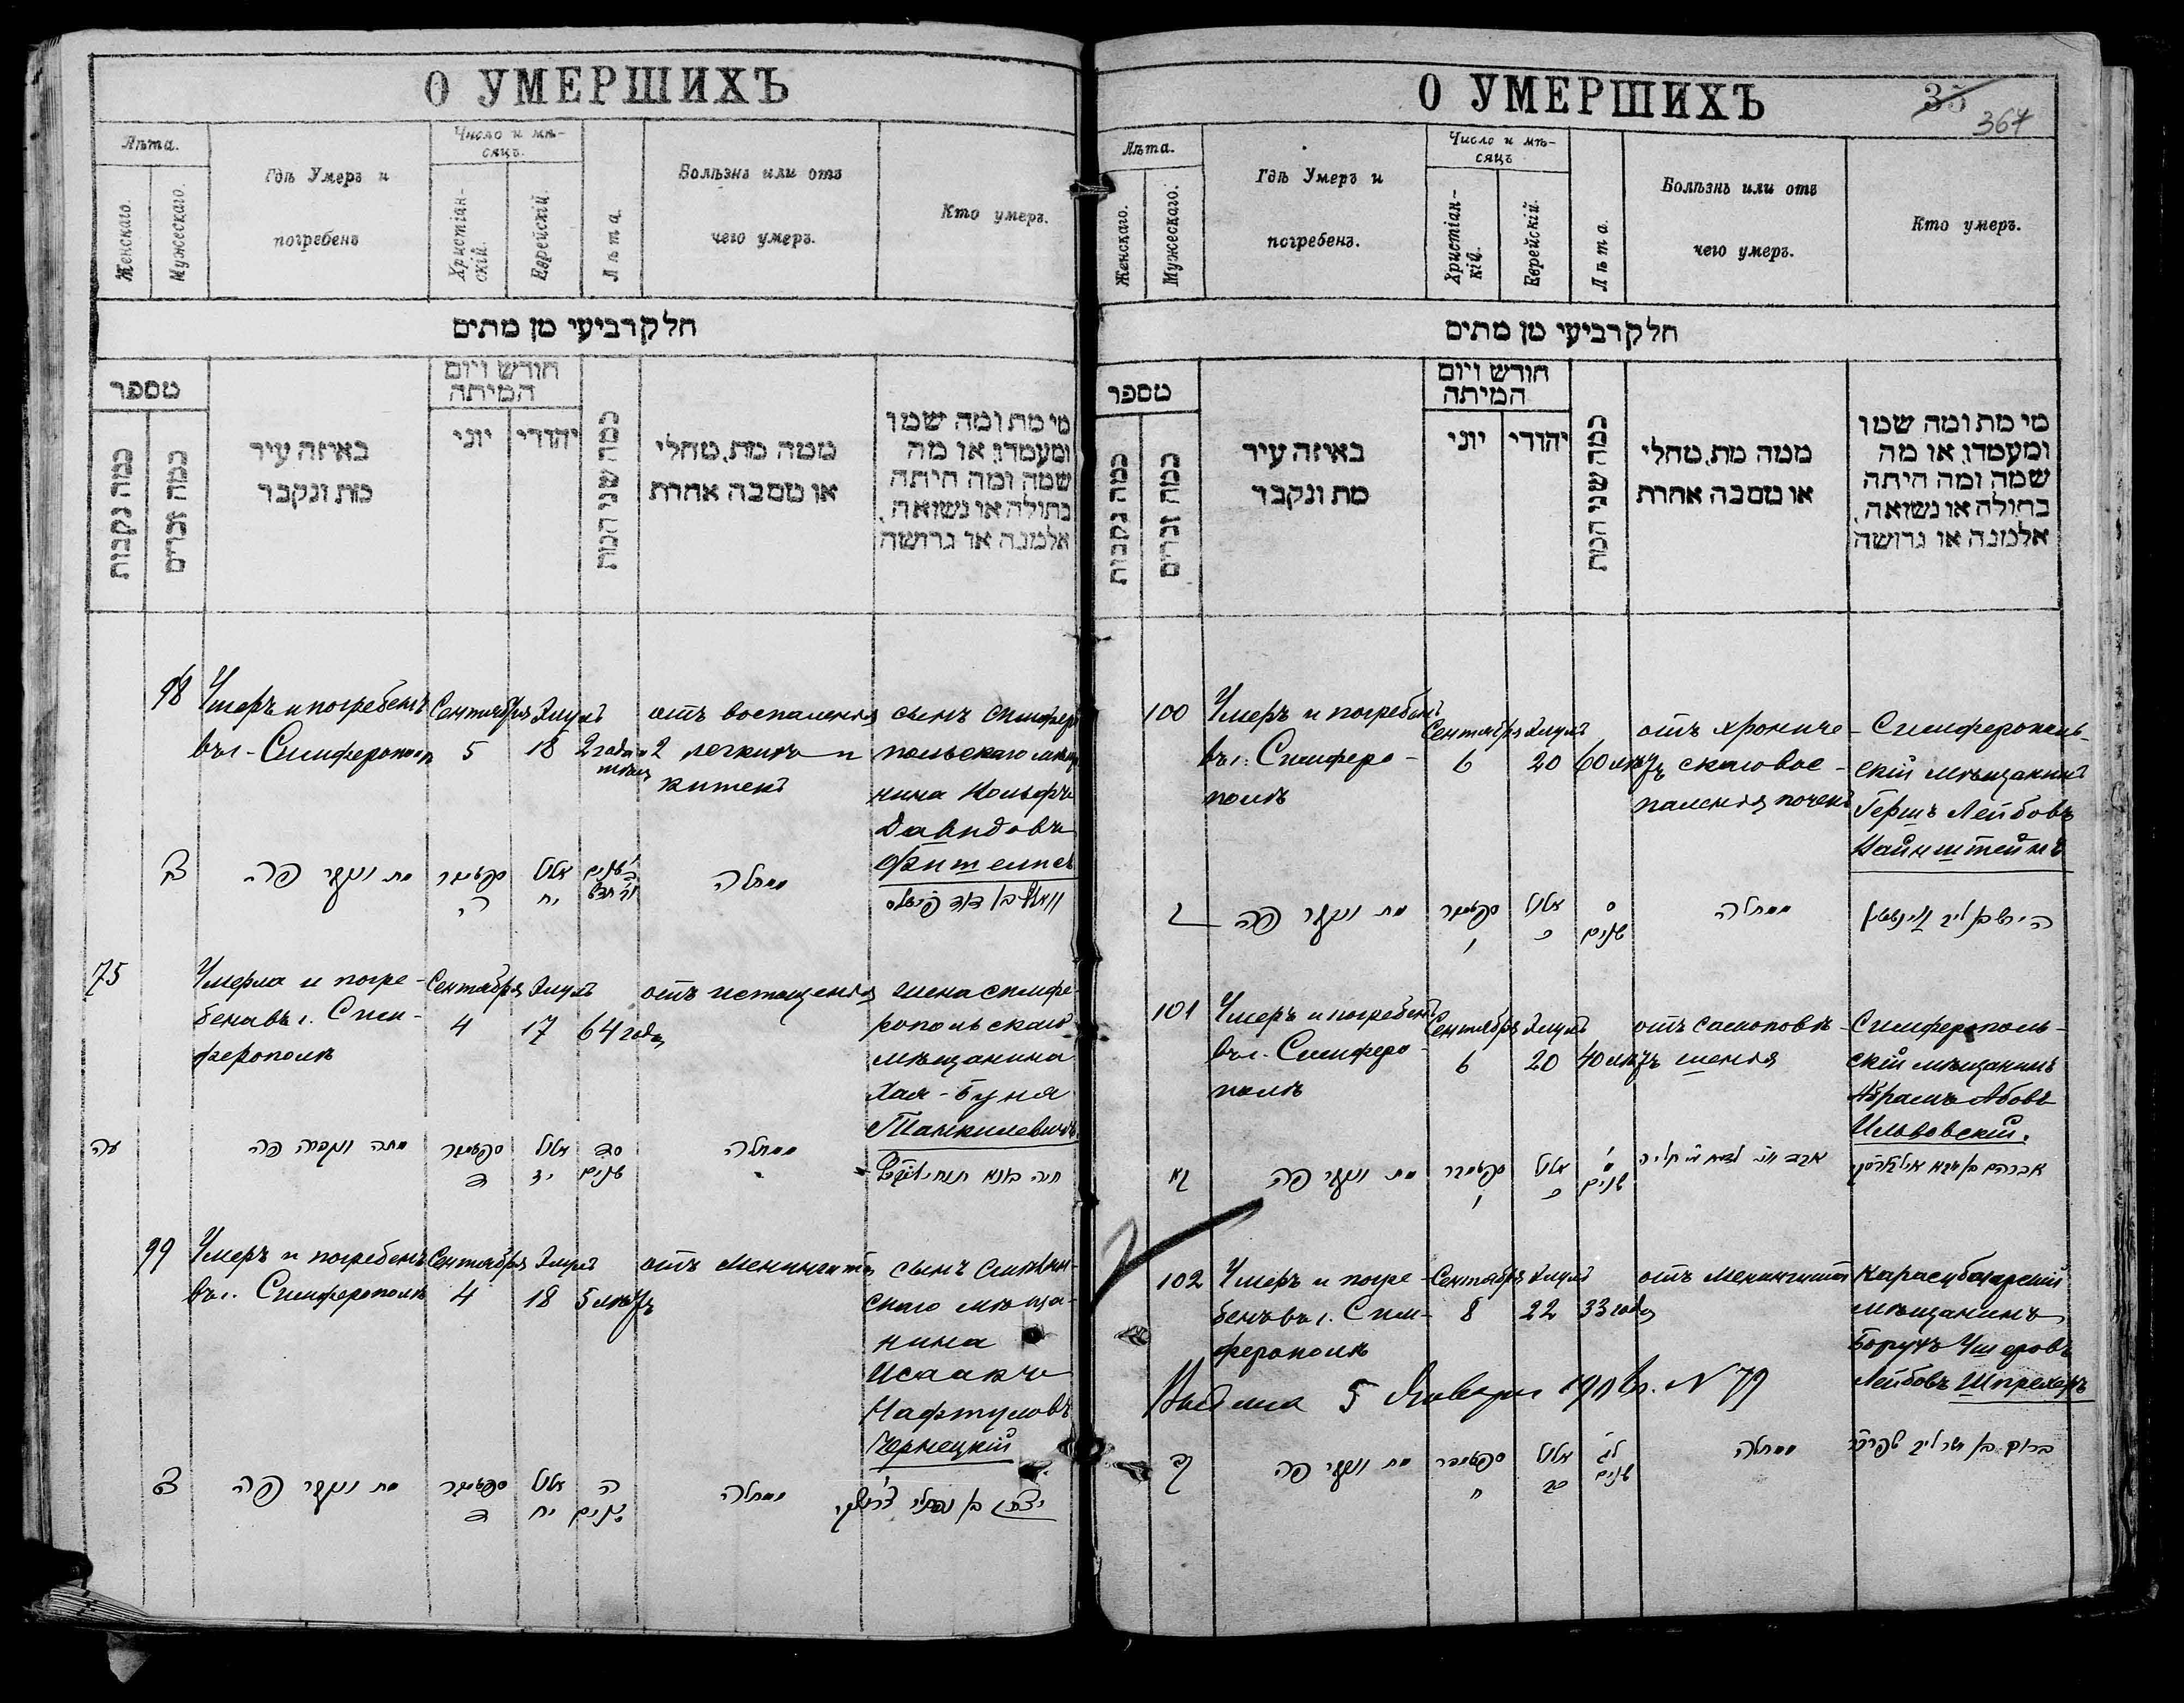 О УМЕРШИХЪ
Лѣта.
Женскаго.
Мужескаго.
Гдѣ Умеръ и
погребенъ
Число и мѣ-
сяцъ.
Христіан-
скій.
Еврейскій.
Лѣта.
Болѣзнь или отъ
чего умеръ.
Кто умеръ.
חלק רביעי מן מתים
מספר
כמה נקבות
כמה זכרים
באיזה עיר
מת ונקבר
חודש ויום
המיתה
יוני
יהודי
כמה שני המת
ממה מת, מחלי
או מסבה אחרת
מי מת ומה שמו
ומעמדו, או מה
שמה ומה היתה
בתולה או נשואה,
אלמנה או גרושה
98
Умеръ и погребенъ
въ г. Симферополѣ
Сентября
5
Элулъ
18
2 года и 2
отъ воспаленія
легкихъ и
сынъ Симферо
польскаго мѣща
нина
Давидовъ
צח
מת ונקבר פה
ספטמבר
ה
אלול
יח
ממחלה
75
Умерла и погре-
бена въ г. Сим-
ферополѣ
Сентября
4
Элулъ
17
64 года
отъ истощенія
жена симфе-
ропольскаго
мѣщанина
Хая-Буня
Танкилевичъ
עה
מתה ונקברה פה
ספטמבר
ד
אלול
יז
סד
שנים
ממחלה
חיה בוניא
99
Умеръ и погребенъ
въ г. Симферополѣ
Сентября
4
Элулъ
18
5 лѣтъ
отъ менингита
сынъ
скаго мѣща-
нина
Исаакъ
Нафтуловъ
Чернецкій
צט
מת ונקבר פה
ספטמבר
ד
אלול
יח
ה
שנים
ממחלה
יצחק בן נפתלי
О УМЕРШИХЪ
35
367
Лѣта.
Женскаго.
Мужескаго.
Гдѣ Умеръ и
погребенъ.
Число и мѣ-
сяцъ
Христіан-
кій.
Еврейскій.
Лѣта.
Болѣзнь или отъ
чего умеръ.
Кто умеръ.
חלק רביעי מן מתים
מספר
כמה נקבות
כמה זכרים
באיזה עיר
מת ונקבר
חודש ויום
המיתה
יוני
יהודי
כמה שני המת
ממה מת, מחלי
או מסבה אחרת
מי מת ומה שמו
ומעמדו, או מה
שמה ומה היתה
בתולה או נשואה,
אלמנה או גרושה
100
Умеръ и погребенъ
въ г. Симферо-
полѣ
Сентября
6
Элулъ
20
60 лѣтъ
отъ хрониче-
скаго вос-
паленія почекъ
Симферополь-
скій мѣщанинъ
Гершъ Лейбовъ
Вайнштейнъ
ק
מת ונקבר פה
ספטמבר
ו
אלול
כ
ס
שנים
ממחלה
הירש בן ליב
101
Умеръ и погребенъ
въ г. Симферо-
полѣ
Сентября
6
Элулъ
20
40 лѣтъ
отъ самоповѣ-
шенія
Симферополь-
скій мѣщанинъ
Абрамъ Абовъ
Ильвовскій.
קא
מת ונקבר פה
ספטמבר
ו
אלול
כ
מ
שנים
אברהם בן אבא
102
Умеръ и погре-
бенъ въ г. Сим-
ферополѣ
Сентября
8
Элулъ
22
33 года
отъ менингита
Карасубазарскій
мѣщанинъ
Борухъ Ушеровъ
Лейбовъ Шпрехеръ
5 Января N 79
קב
מת ונקבר פה
ספטמבר
ח
אלול
כב
לג
שנים
ממחלה
ברוך בן